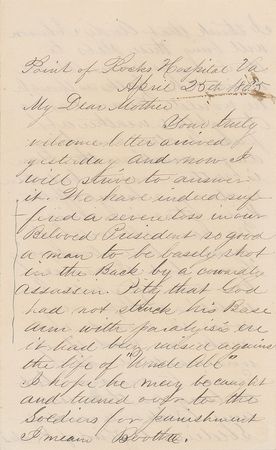 Point of Rocks Hospital Va
April 25th 1865
My Dear Mother
Your truly
welcome letter arrived
yesterday and now I
will strive to answer
it. We have indeed suf
fered a severe loss in our
Beloved President so good
a man to be basely shot
in the Back by a cowardly
assassin. Pity that God
had not struck his Base
arm with paralysis ere
it had been raised against
the life of "Uncle Abe"
I hope he may be caught
and turned over to the
Soldiers for punishment
I mean Boothe.